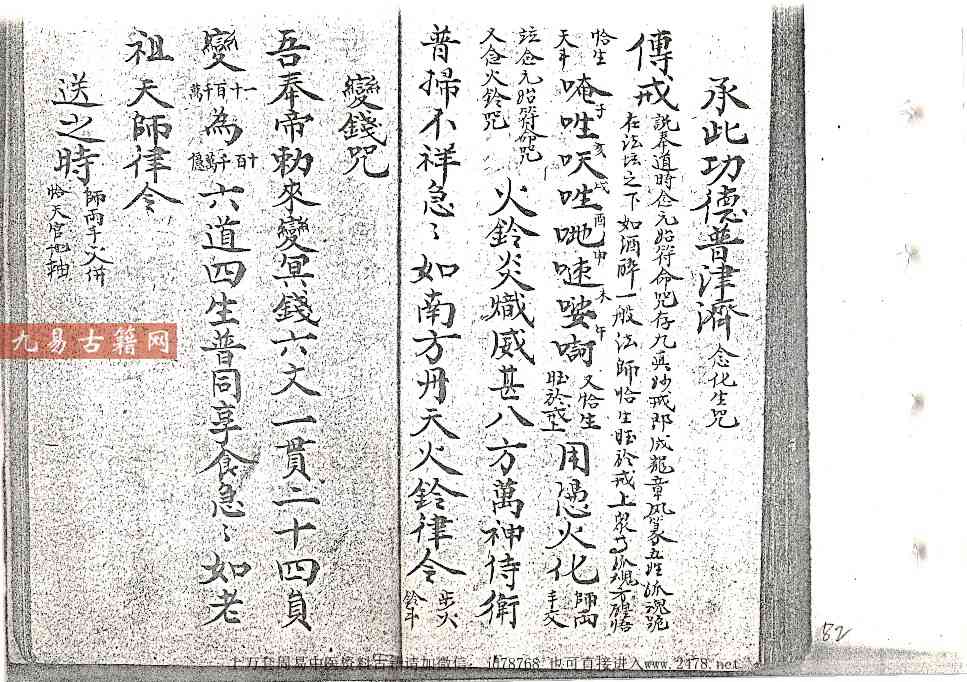 承此功德普津濟 念化生咒
傳戒 說奉道時念元始符命咒存九真妙戒即成龍章鳳篆五姓孤魂跪
在法坛之下如酒醉一般法師恰生旺於戒上與了孤魂方醒悟
恰生 天斗 唵呥吷呥 又恰生 旺於戒上 用憑火化 師両手交
並念元始符命咒 又念火鈴咒 火鈴炎熾威甚八方萬神侍衛
普掃不祥急〻如南方丹天火鈴律令 步火鈴斗
變錢咒
吾奉帝勅來變冥錢六文一貫二十四貟
變 一十百千萬 為 十百千萬億 六道四生普同享食急〻如老
祖天師律令
送之時 師両手交併 恰天官
九易古籍网
52
十万套周易中医资料 请加微信:1078768 也可直接进入www.2478.net